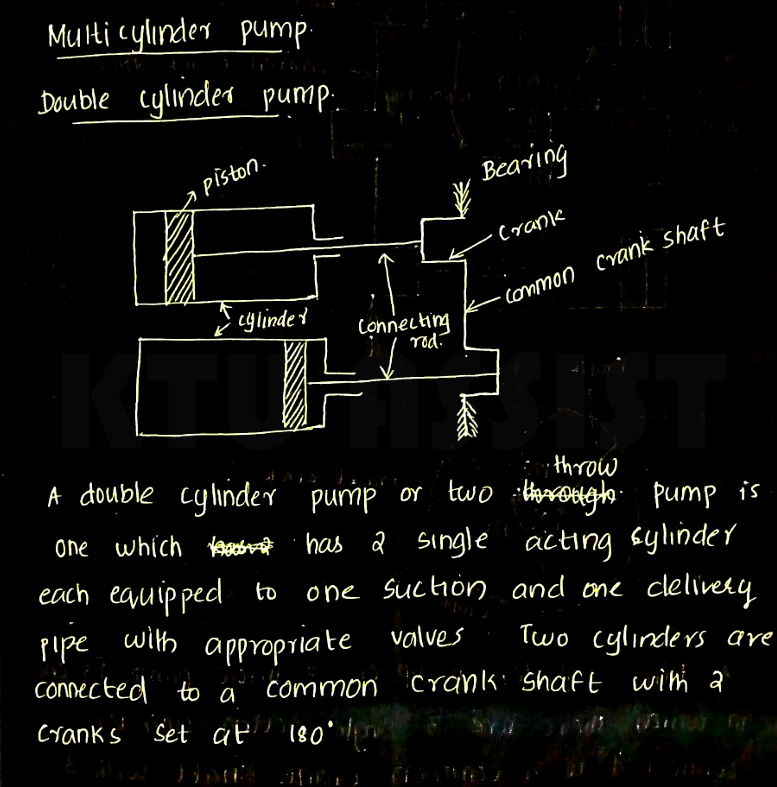 Multi cylinder pump.
Double cylinder pump.
piston.
Bearing
crank
common crank shaft
cylinder
connecting
rod.
KTU ASSIST
throw
A double cylinder pump or two through pump is
one which has 2 single acting cylinder
each equipped to one suction and one delivery
pipe with appropriate valves. Two cylinders are
connected to a common crank shaft with 2
cranks set at 180°